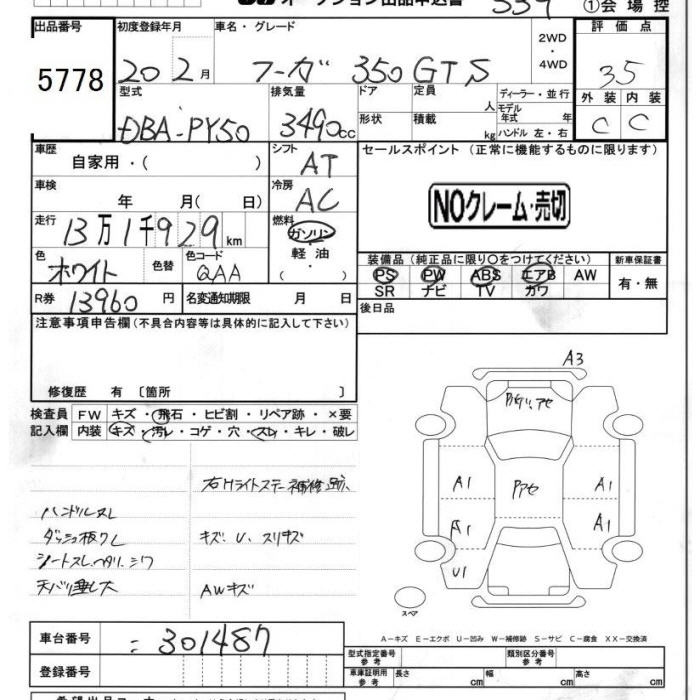 オークション出品申込書 339 ①会場控
出品番号 初度登録年月 車名・グレード 2WD・4WD 評価点
5778 20 2月 フーガ 350GTS 3.5
型式 排気量 ドア 定員 人 ディーラー・並行 外装 内装
DBA-PY50 3490cc 形状 積載 kg モデル年式 年 ハンドル 左・右 C C
車歴 自家用・( ) シフト AT セールスポイント (正常に機能するものに限ります)
車検 年 月( 日) 冷房 AC NOクレーム・売切
走行 13万1千929km 燃料 ガソリン・軽油・( )
色 ホワイト 色替 色コード QAA 装備品(純正品に限り○をつけてください) 新車保証書
PS PW ABS エアB AW 有・無
SR ナビ TV カワ
R券 13960円 名変通知期限 月 日 後日品
注意事項申告欄(不具合内容等は具体的に記入して下さい)
修復歴 有〔箇所 〕
検査員 FW キズ・飛石・ヒビ割・リペア跡・×要
記入欄 内装 キズ・汚レ・コゲ・穴・スレ・キレ・破レ
A3
右Hライトステー補修跡
ハンドルスレ
ダッシュ板クレ キズ、U、スリキズ
シートスレ、ヘタリ、シワ
天バリ垂レ大 AWキズ
アセ
A1 A1
A1 A1
U1
スペア
A-キズ E-エクボ U-凹み W-補修跡 S-サビ C-腐食 XX-交換済
車台番号 301487
型式指定番号 参考 類別区分番号 参考
登録番号 車庫証明用 参考 長さ cm 幅 cm 高さ cm